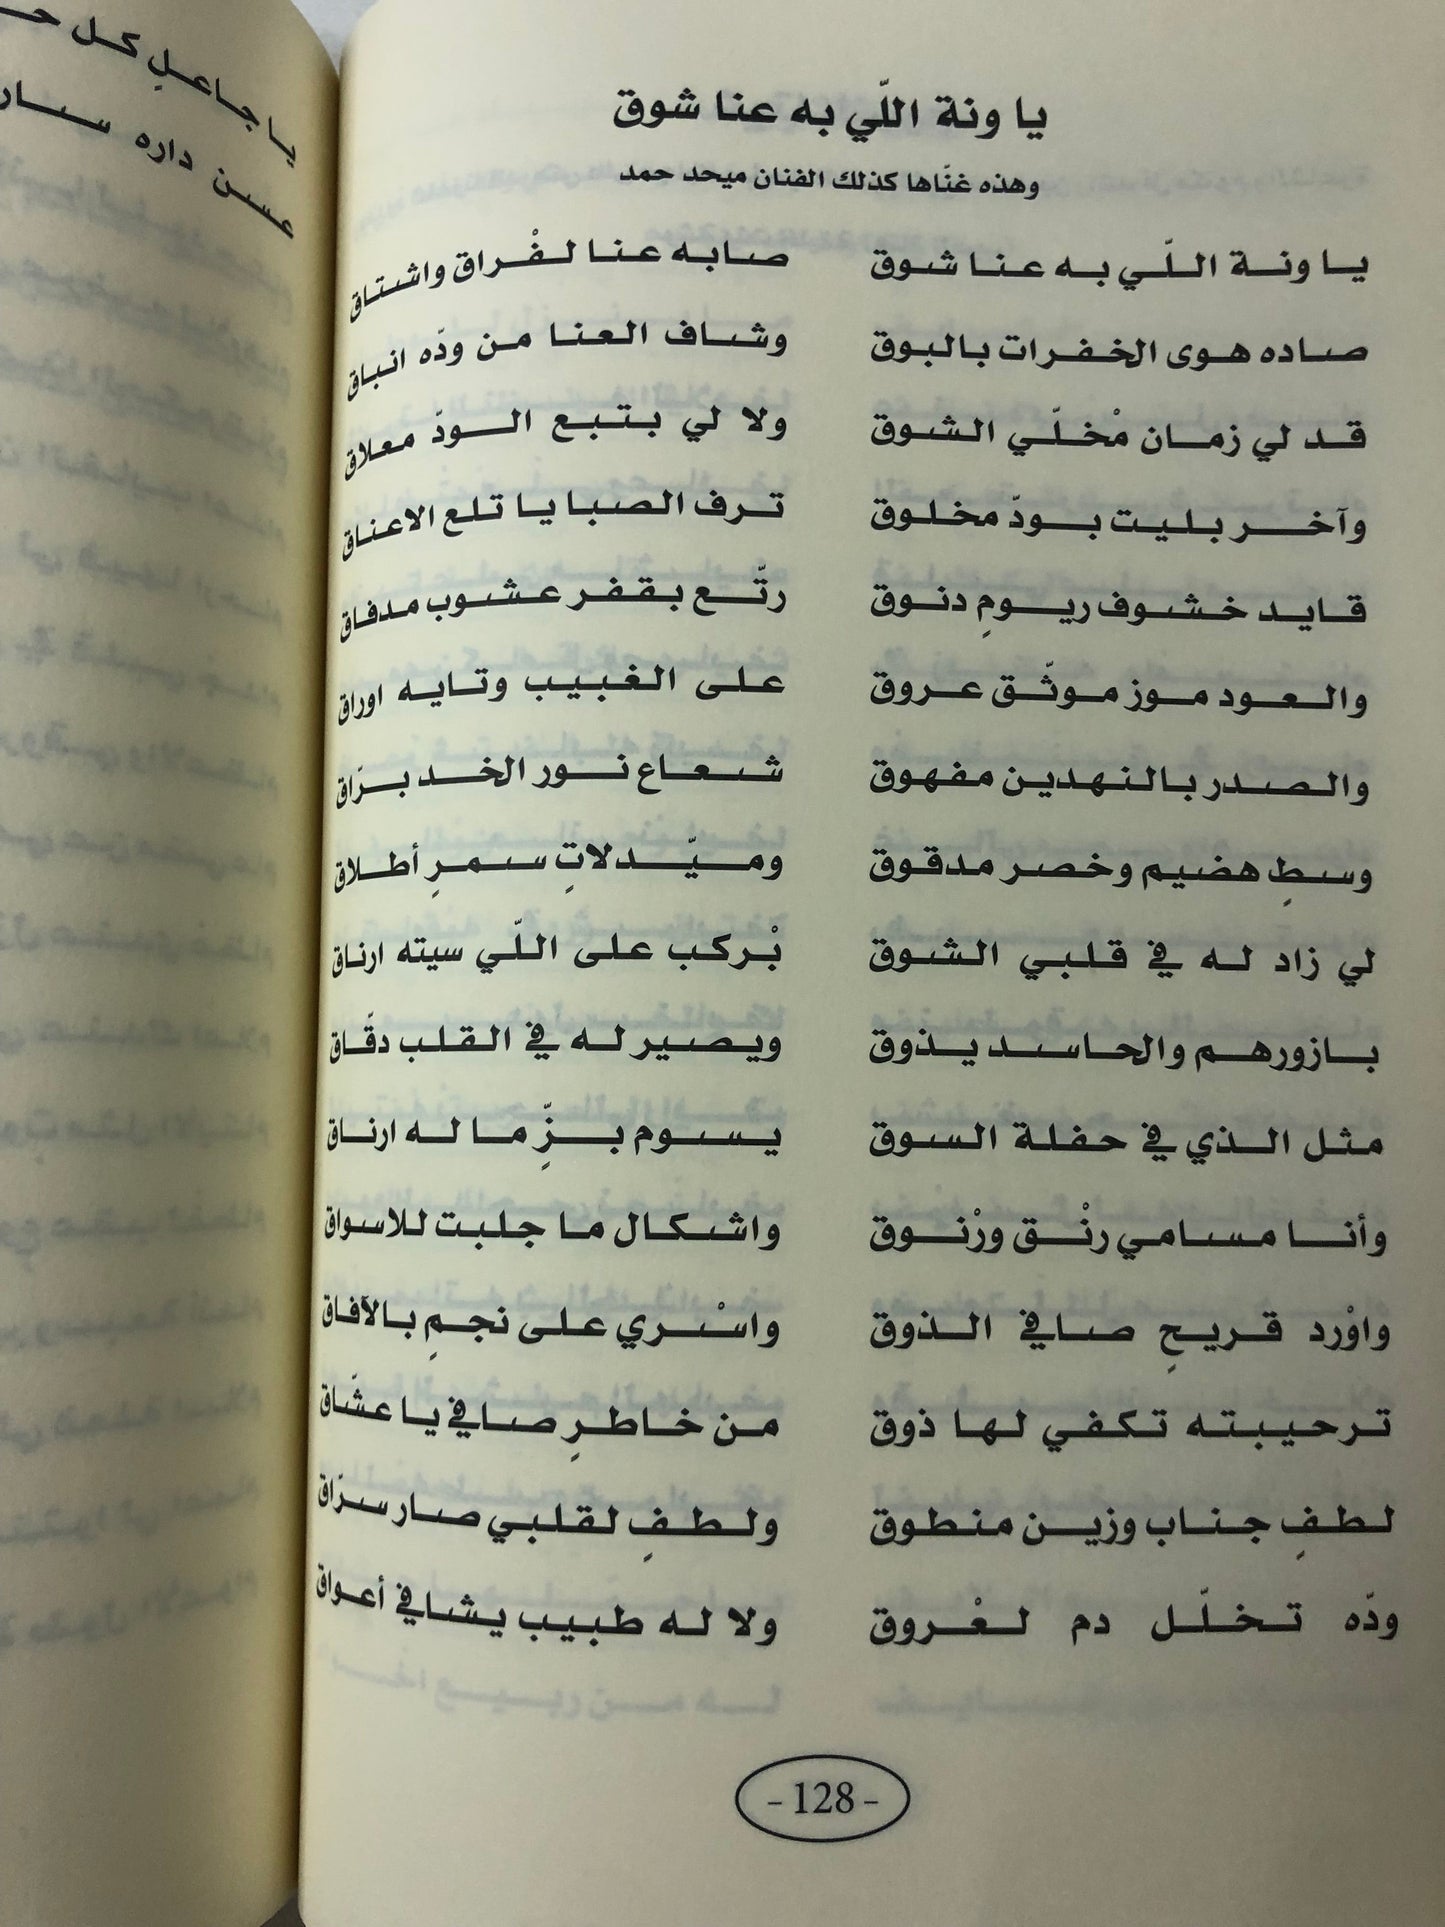 يا جاعلِ كل
عسن داره
يا ونة اللّي به عنا شوق
وهذه غنّاها كذلك الفنان ميحد حمد
يا ونة اللّي به عنا شوق صابه عنا لفْراق واشتاق
صاده هوى الخفرات بالبوق وشاف العنا من ودّه انباق
قد لي زمان مْخلّي الشوق ولا لي بتبع الودّ معلاق
وآخر بليت بودّ مخلوق ترف الصبا يا تلع الاعناق
قايد خشوف ريومِ دنوق رتّع بقفر عشوب مدفاق
والعود موز موثّق عروق على الغبيب وتايه اوراق
والصدر بالنهدين مفهوق شعاع نور الخد برّاق
وسطِ هضيم وخصر مدقوق وميّدلاتِ سمرِ أطلاق
لي زاد له في قلبي الشوق بْركب على اللّي سيته ارناق
بازورهم والحاسد يذوق ويصير له في القلب دقّاق
مثل الذي في حفلة السوق يسوم بزِّ ما له ارناق
وأنا مسامي رنْق ورْنوق واشكال ما جلبت للاسواق
واوْرد قريحِ صافي الذوق واسْري على نجمِ بالآفاق
ترحيبته تكفي لها ذوق من خاطرِ صافي يا عشّاق
لطفِ جناب وزين منطوق ولطفِ لقلبي صار سرّاق
ودّه تخلّل دم لعْروق ولا له طبيب يشافي أعواق
- 128 -